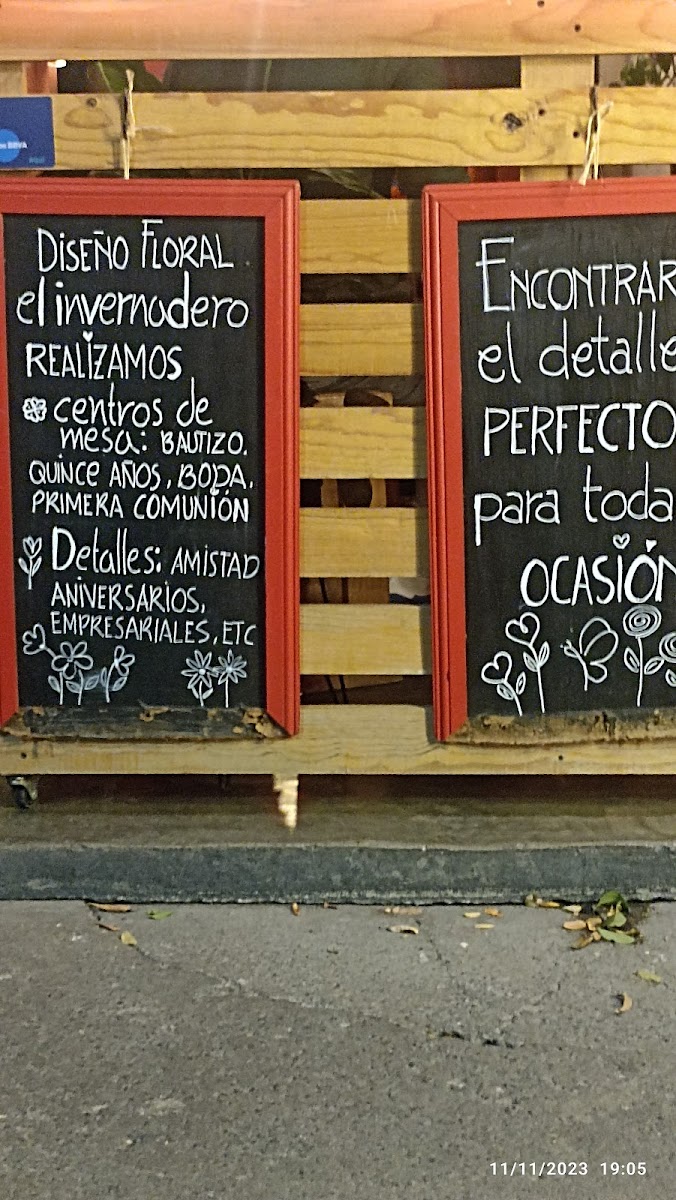 BBVA
Aquí
DISEÑO FLORAL
el invernadero
REALIZAMOS
centros de
mesa: BAUTIZO.
QUINCE AÑOS, BODA,
PRIMERA COMUNIÓN
Detalles: AMISTAD
ANIVERSARIOS,
EMPRESARIALES, ETC
ENCONTRAR
el detalle
PERFECTO
para toda
OCASIÓN
11/11/2023 19:05